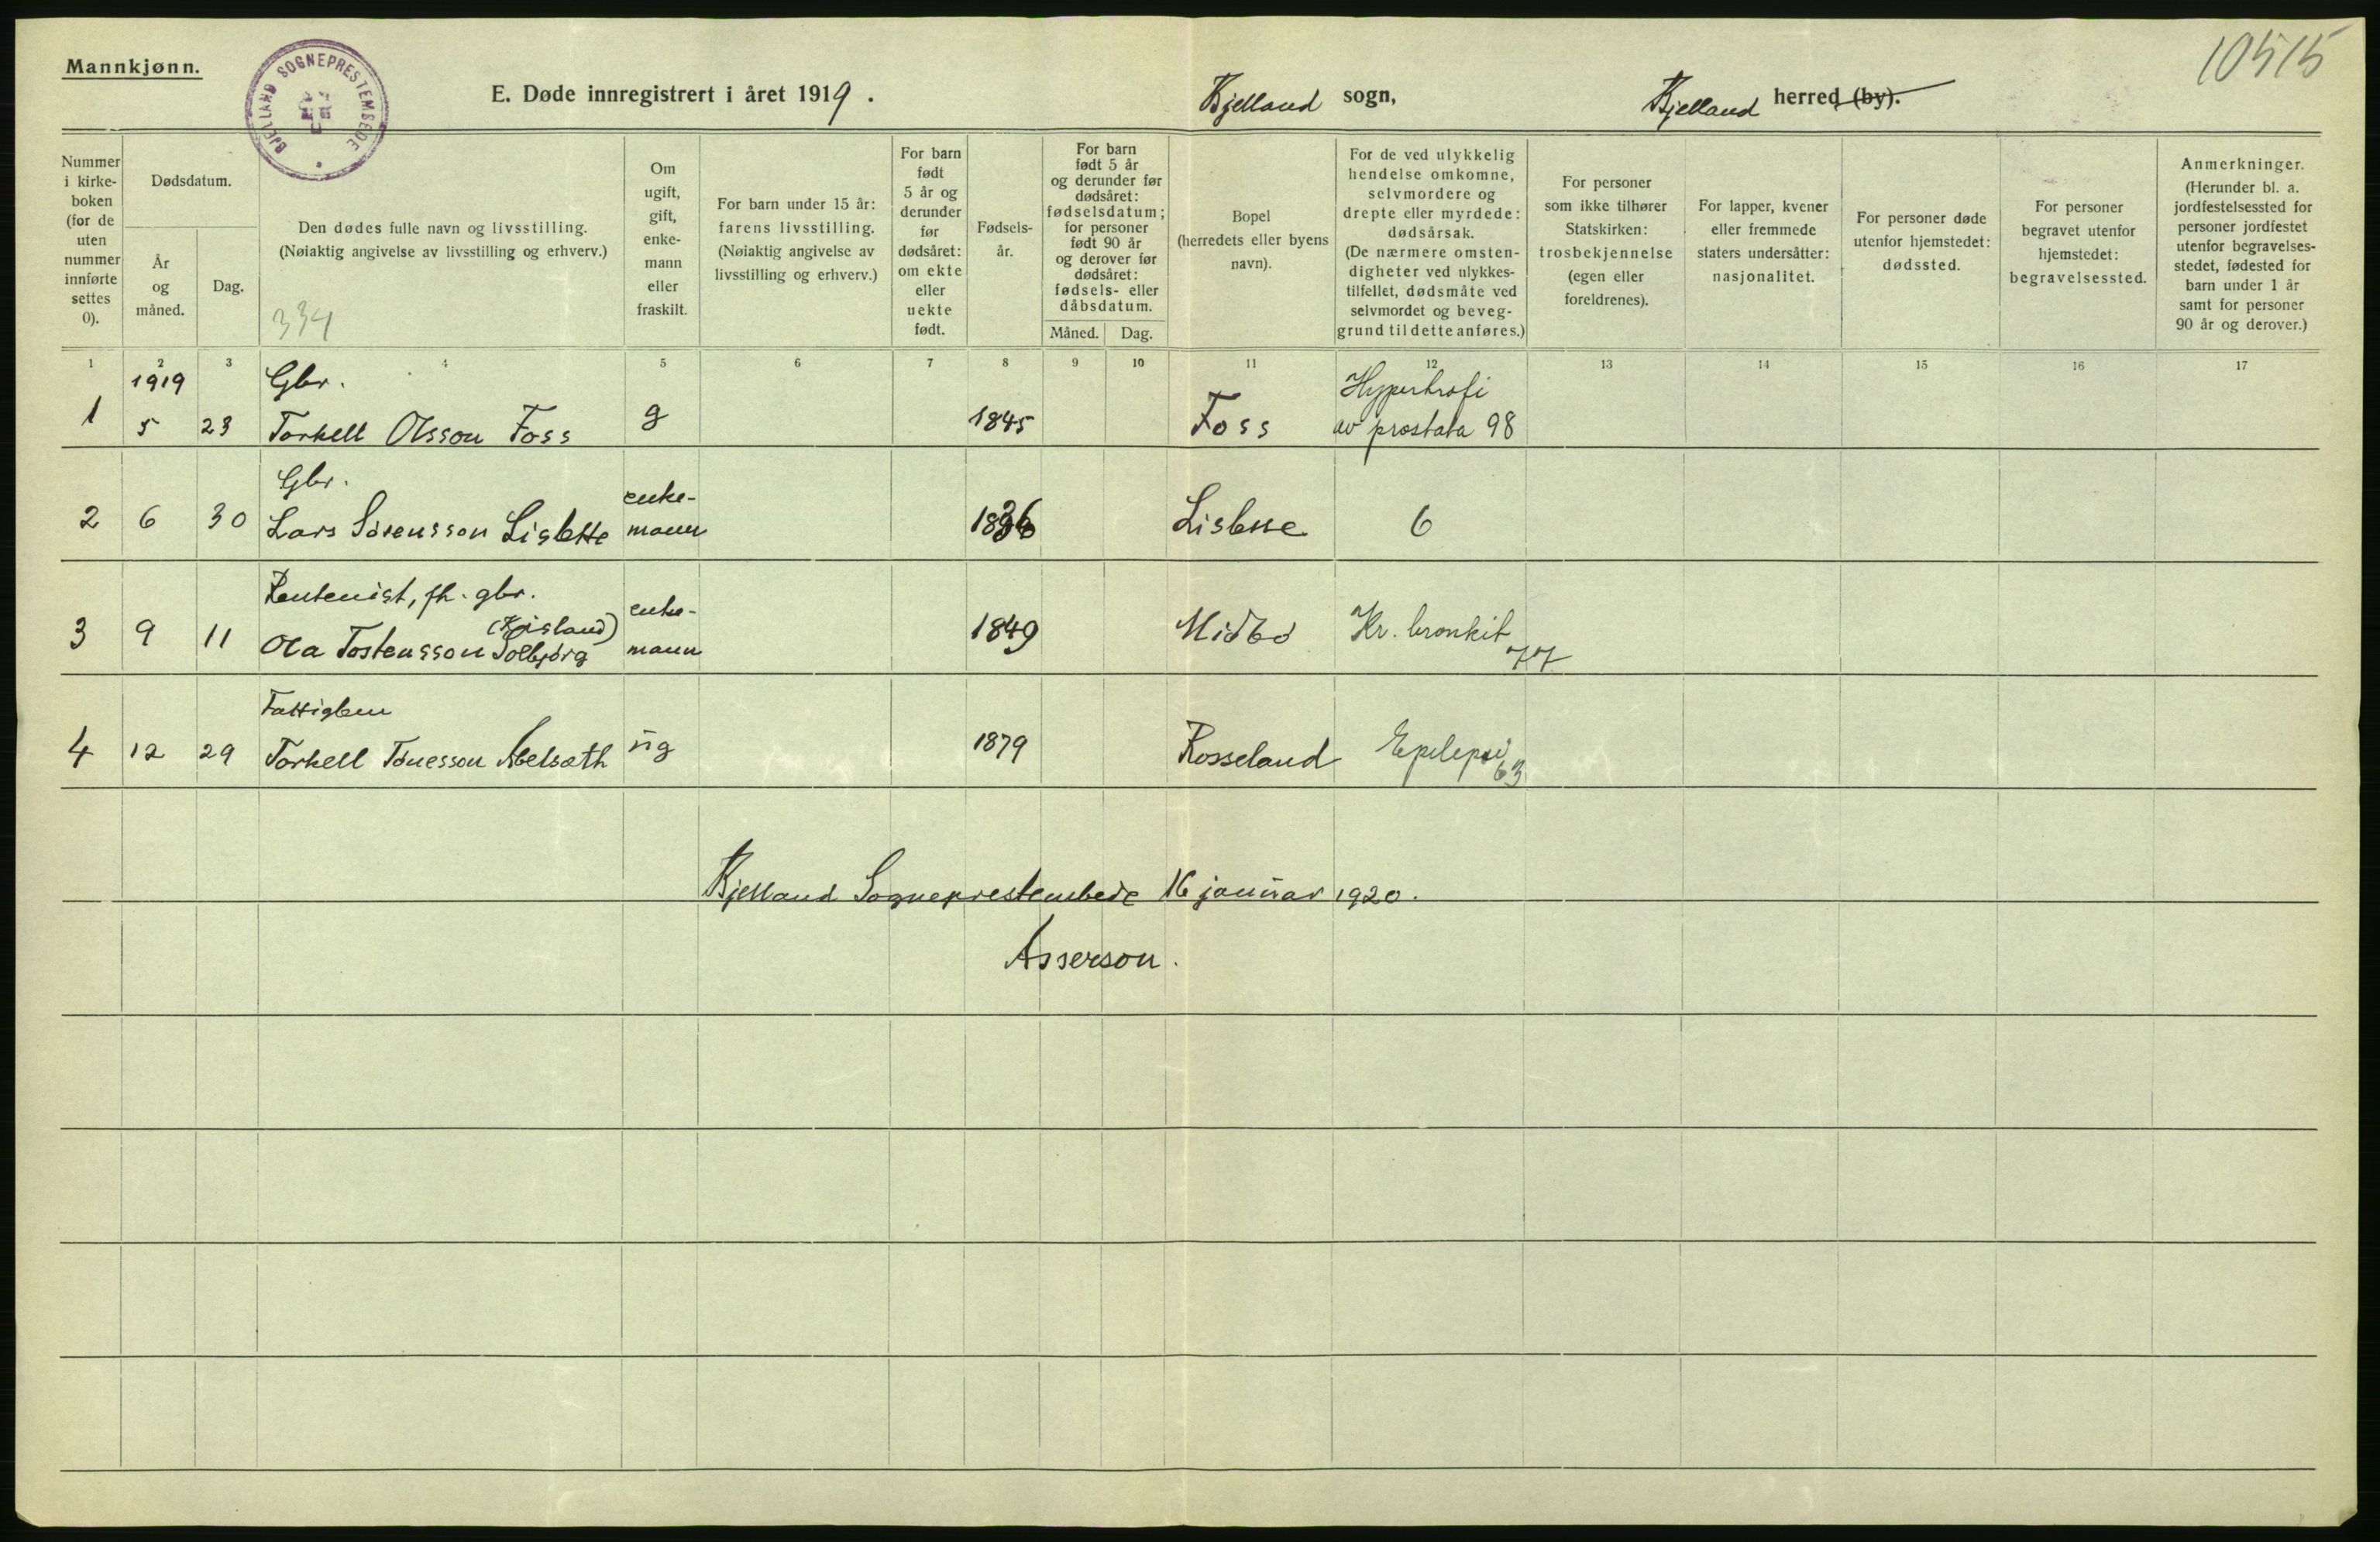 Mannkjønn.
BJELLAND SOGNEPRESTEMBEDE
10515
E. Døde innregistrert i året 1919.
Bjelland sogn,
Bjelland herred (by).
Nummer
i kirke-
boken
(for de
uten
nummer
innførte
settes
0).
Dødsdatum.
År
og
måned.
Dag.
Den dødes fulle navn og livsstilling.
(Nøiaktig angivelse av livsstilling og erhverv.)
334
Om
ugift,
gift,
enke-
mann
eller
fraskilt.
For barn under 15 år:
farens livsstilling.
(Nøiaktig angivelse av
livsstilling og erhverv.)
For barn
født
5 år og
derunder
før
dødsåret:
om ekte
eller
uekte
født.
Fødsels-
år.
For barn
født 5 år
og derunder før
dødsåret:
fødselsdatum;
for personer
født 90 år
og derover før
dødsåret:
fødsels- eller
dåbsdatum.
Måned.
Dag.
Bopel
(herredets eller byens
navn).
For de ved ulykkelig
hendelse omkomne,
selvmordere og
drepte eller myrdede:
dødsårsak.
(De nærmere omsten-
digheter ved ulykkes-
tilfellet, dødsmåte ved
selvmordet og beveg-
grund til dette anføres.)
For personer
som ikke tilhører
Statskirken:
trosbekjennelse
(egen eller
foreldrenes).
For lapper, kvener
eller fremmede
staters undersåtter:
nasjonalitet.
For personer døde
utenfor hjemstedet:
dødssted.
For personer
begravet utenfor
hjemstedet:
begravelsessted.
Anmerkninger.
(Herunder bl. a.
jordfestelsessted for
personer jordfestet
utenfor begravelses-
stedet, fødested for
barn under 1 år
samt for personer
90 år og derover.)
1 2 3 4 5 6 7 8 9 10 11 12 13 14 15 16 17
1919 Gbr. Hypertrofi
1 5 23 Torkell Olsson Foss g 1845 Foss av prostata 98
Gbr. enke-
2 6 30 Lars Sörensson mann 1836 6
Rentenist, fh. gbr. enke-
3 9 11 Ola Tostensson Solbjørg mann 1849 Midbö Kr. bronkit
77
Fattiglem
4 12 29 Torkell Tönesson ug 1879 Rosseland Epilepsi
63
Bjelland Sogneprestembede 16 januar 1920.
Asserson.